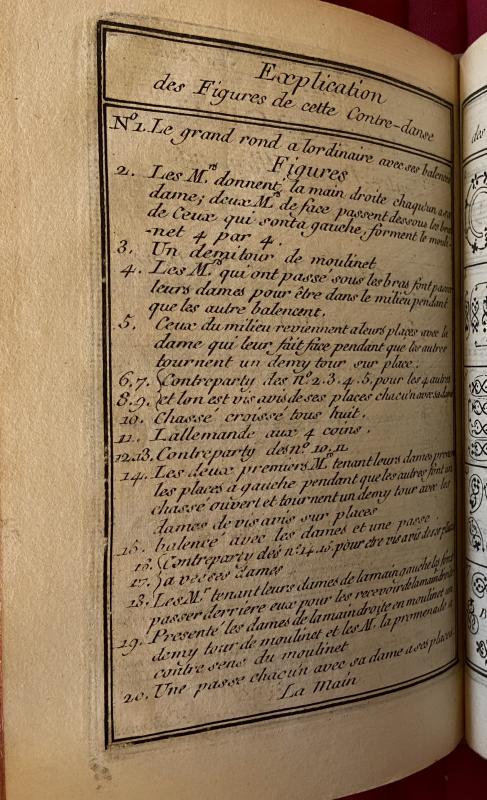 Explication
des Figures de cette Contre-danse
Nº1. Le grand rond a lordinaire avec ses balencés
Figures
2. Les M.rs donnent, la main droite chaqu'un a sa
dame; deux M.rs de face passent dessous les bras
de Ceux qui sont a gauche, forment le mouli-
-net 4 par 4.
3. Un demi tour de moulinet
4. Les M.rs qui ont passé sous les bras font passer
leurs dames pour être dans le milieu pendant
que les autre balencent.
5. Ceux du milieu reviennent a leurs places avec la
dame qui leur fait face pendant que les autres
tournent un demy tour sur place.
6,7. Contreparty des nº 2. 3. 4. 5. pour les 4 autres
8.9. et lon est vis avis de ses places chacu'n avec sa dame
10. Chassé croissé tous huit.
11. Lallemande aux 4 coins.
12.13. Contreparty des nº. 10. 11
14. Les deux premiers M.rs tenant leurs dames
les places a gauche pendant que les autres font un
chassé ouvert et tournent un demy tour avec les
dames de vis avis sur places
15. balencé avec les dames et une passe.
16. Contreparty des nº. 14. 15. pour etre vis avis de ses places
17. avec ses dames
18. Les M.rs tenant leurs dames de la main gauche les font
passer derriere eux pour les recevoir de la main droite
19. Presenté les dames de la main droite en moulinet un
demy tour de moulinet et les M. la promenade a
contre sens du moulinet
20. Une passe chacu'n avec sa dame a ses places.
La Main
des